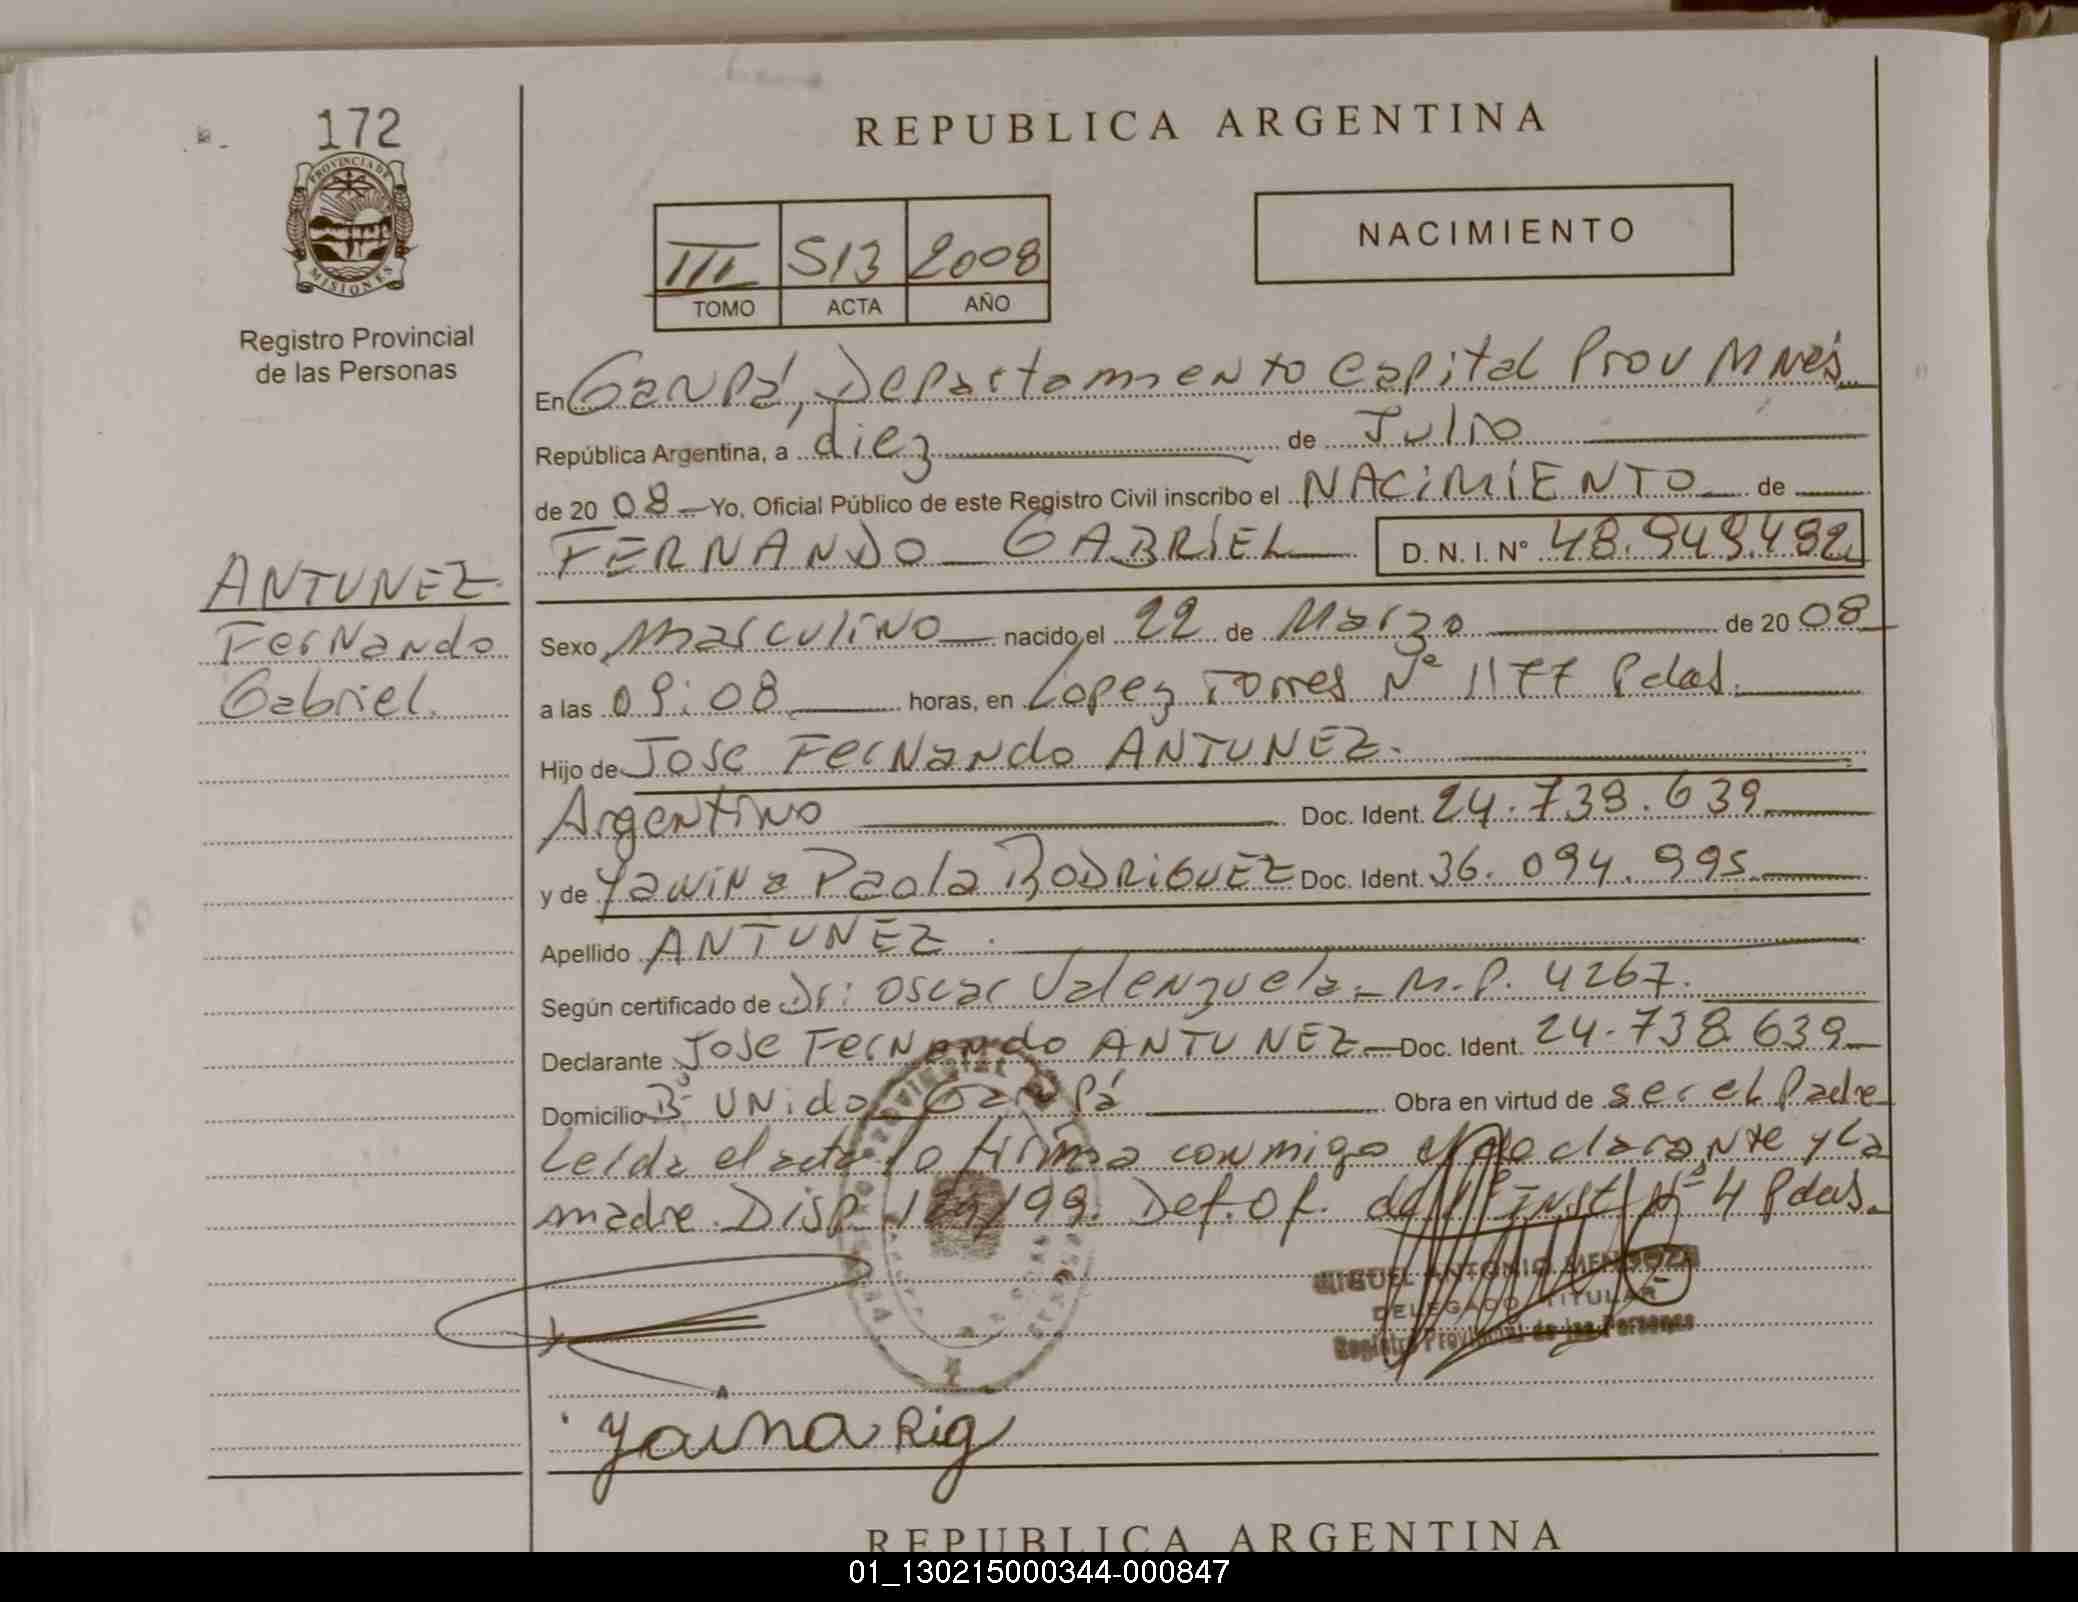 172
PROVINCIA DE
MISIONES
Registro Provincial
de las Personas
REPUBLICA ARGENTINA
III 513 2008
TOMO ACTA AÑO
NACIMIENTO
En Garupá, Departamento Capital Prov Mnes
República Argentina, a diez de Julio
de 2008 Yo, Oficial Público de este Registro Civil inscribo el NACIMIENTO de
FERNANDO GABRIEL D. N. I. Nº 48.949.492
ANTUNEZ
Fernando
Gabriel.
Sexo Masculino nacido el 22 de Marzo de 2008
a las 09:08 horas, en Lopez Torres Nº 1177 Pdas.
Hijo de Jose Fernando ANTUNEZ.
Argentino Doc. Ident. 24.738.639
y de Yanina Paola RODRIGUEZ Doc. Ident. 36.094.995
Apellido ANTUNEZ
Según certificado de Dr: Oscar Valenzuela - M.P. 4267.
Declarante Jose Fernando ANTUNEZ Doc. Ident. 24.738.639
Domicilio Bº Unido Garupá Obra en virtud de ser el Padre
Leida el acta lo firma conmigo el declarante y la
madre. Disp. /99. Def. Of. de Inst Nº 4 Pdas.
MIGUEL ANTONIO MENDOZA
DELEGADO TITULAR
Registro Provincial de las Personas
Yaina Rig
REPUBLICA ARGENTINA
01_130215000344-000847